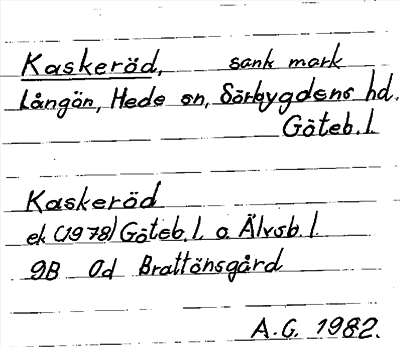 Kaskeröd, sank mark
Långön, Hede sn, Sörbygdens hd.
Göteb. l.
Kaskeröd
ek (1978) Göteb. l. o. Älvsb. l
9B 0d Brattönsgård
A. G. 1982.